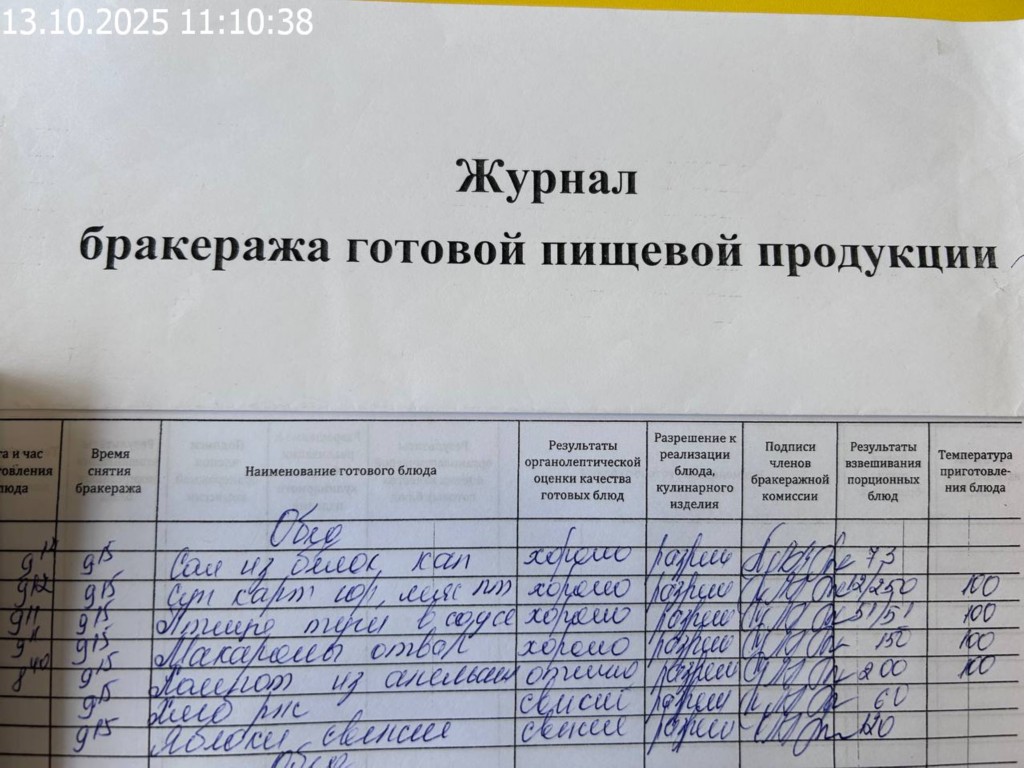 13.10.2025 11:10:38
Журнал
бракеража готовой пищевой продукции
та и час
товления
люда
Время
снятия
бракеража
Наименование готового блюда
Результаты
органолептической
оценки качества
готовых блюд
Разрешение к
реализации
блюда,
кулинарного
изделия
Подписи
членов
бракеражной
комиссии
Результаты
взвешивания
порционных
блюд
Температура
приготовле-
ния блюда
Обед
9 15 Сал из белок кап хорошо разреш 73
9 12 9 15 Суп карт гор, мяс пт хорошо разреш 12/250 100
9 11 9 15 Птица туш в соусе хорошо разреш 51/51 100
9 15 Макароны отвар хорошо разреш 150 100
8 40 9 15 Компот из апельсин отлично разреш 200 100
9 15 Хлеб рж свежий разреш 60
9 15 Яблоки свежие свежие разреш 120